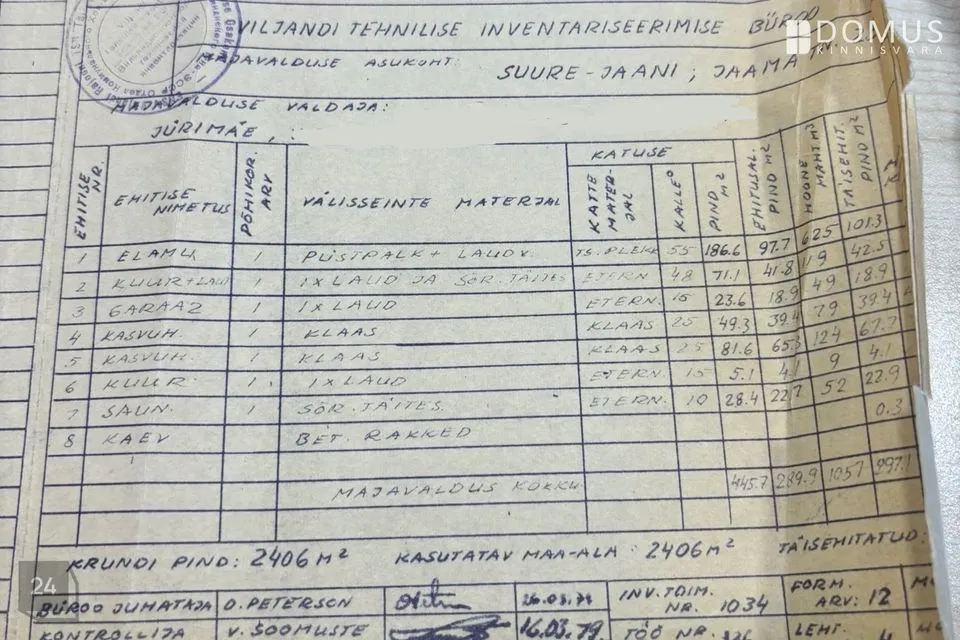 VILJANDI TEHNILISE INVENTARISEERIMISE BÜROO
DOMUS
KINNISVARA
MAJAVALDUSE ASUKOHT: SUURE-JAANI, JAAMA
MAJAVALDUSE VALDAJA:
JÜRIMÄE,
EHITISE NR. EHITISE NIMETUS PÕHIKOR. ARV VÄLISSEINTE MATERJAL KATUSE KATTE MATERJAL KALLE° PIND M² EHITUSAL. PIND M² HOONE MAHT M³ TÄISEHIT. PIND M²
1 ELAMU 1 PÜSTPALK + LAUDV. TS. PLEKK 55 186.6 97.7 625 101.3
2 KUUR+LAUT 1 1X LAUD JA SÖR. TÄITES ETERN 48 71.1 41.8 119 42.5
3 GARAAZ 1 1X LAUD ETERN. 15 23.6 18.9 49 18.9
4 KASVUH. 1 KLAAS KLAAS 25 49.3 39.4 79 39.4
5 KASVUH. 1 KLAAS KLAAS 25 81.6 65.3 124 67.7
6 KUUR 1 1X LAUD ETERN. 15 5.1 4.1 9 4.1
7 SAUN. 1 SÖR. TÄITES ETERN. 10 28.4 22.7 52 22.9
8 KAEV BET. RAKKED 0.3
MAJAVALDUS KOKKU 445.7 289.9 1057 297.1
KRUNDI PIND: 2406 M² KASUTATAV MAA-ALA: 2406 M² TÄISEHITATUD:
24
BÜROO JUHATAJA O. PETERSON 26.03.79 INV. TOIM. NR. 1034 FORM. ARV: 12
KONTROLLIJA V. SOOMUSTE 16.03.79 TÖÖ NR. LEHT.